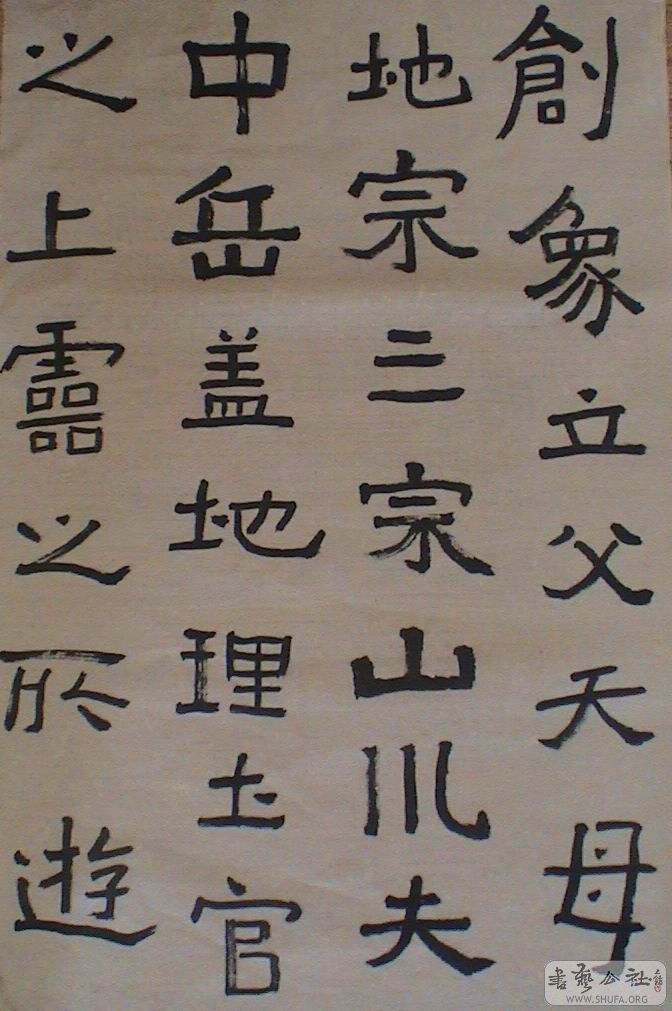 創象立父天母
地宗三宗山川夫
中岳盖地理土官
之上靈之所遊
書藝公社
WWW.SHUFA.ORG